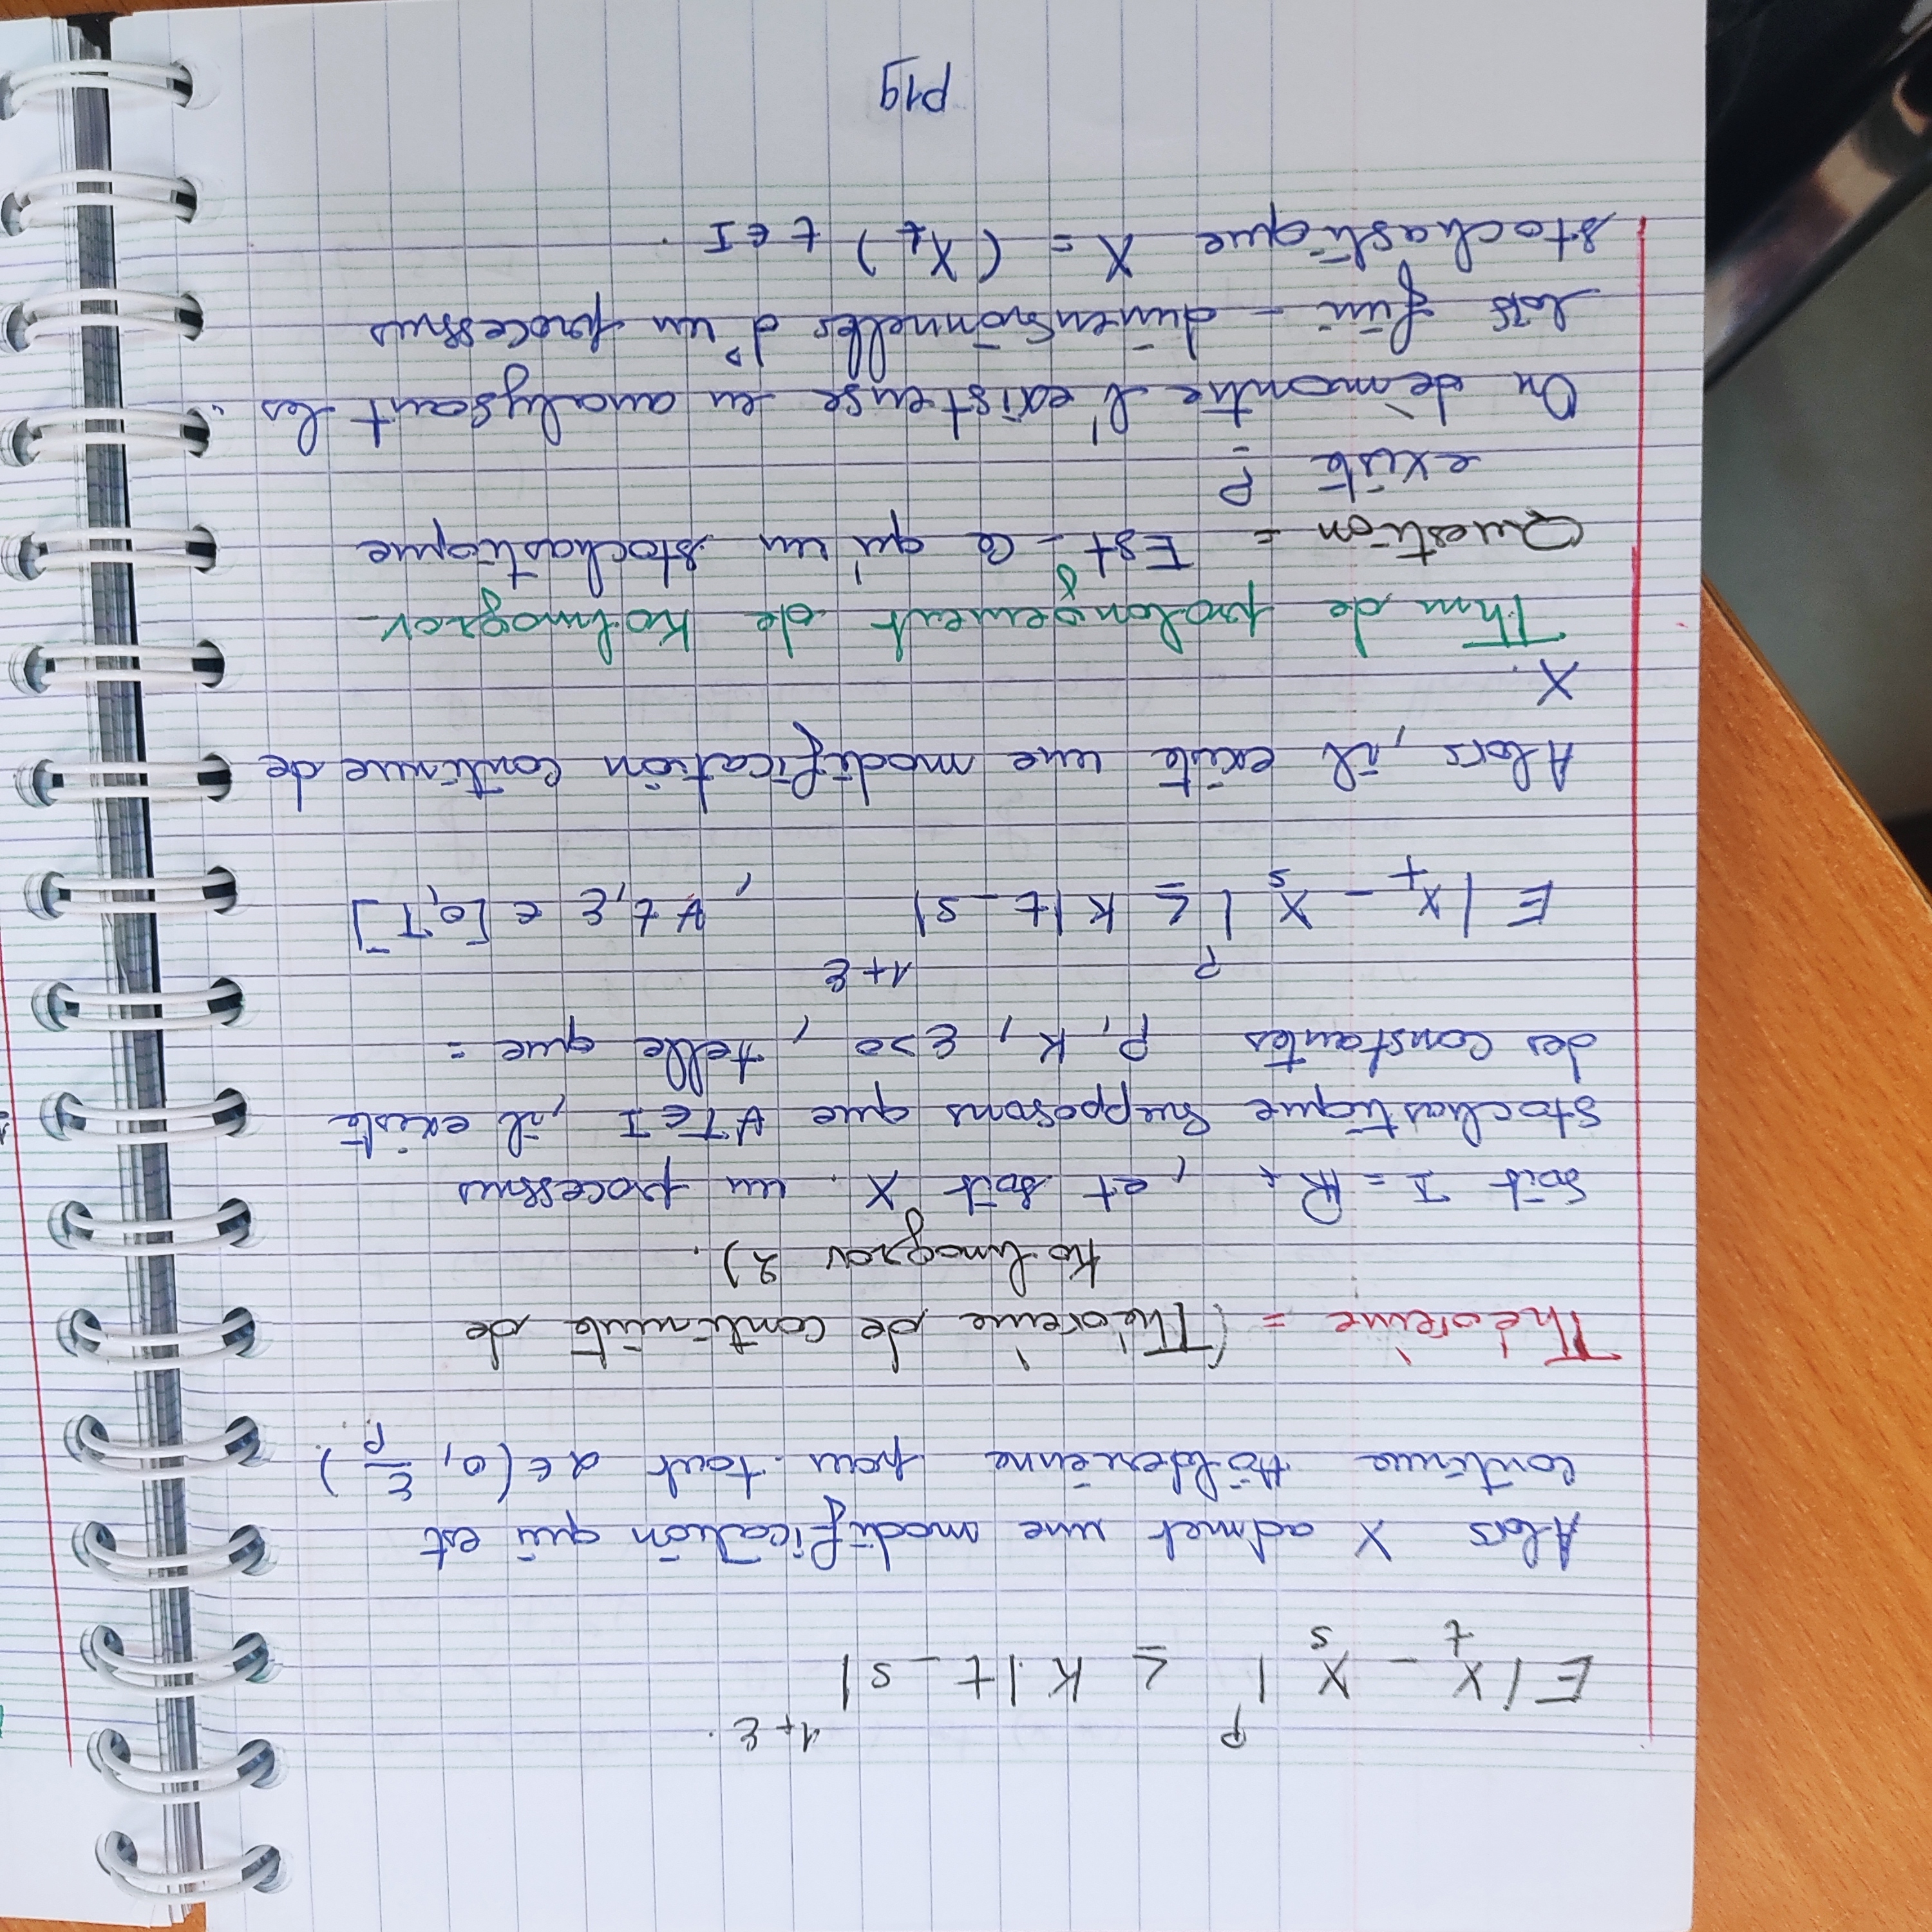 E|X_t - X_s|^p ≤ K.|t-s|^{1+ε}.
Alors X admet une modification qui est
continue Hölderiénne pour tout α∈(0, ε/p).
Théoreme = (Théoreme de continuité de
Kolmogrov 2).
Soit I = ℝ₊ , et soit X. un processus
stochastique Supposons que ∀T∈I , il existe
des constantes p, K, ε>0 , telle que =
E|X_t - X_s|^p ≤ K|t-s|^{1+ε} , ∀ t,ε ∈ [0,T]
Alors, il existe une modification continue de
X.
Thm de prolongement de Kolmogrov-
Question = Est-ce qu'un stochastique
existe ?
On démontre l'existense en analysant les
lois fini-dimensionnelles d'un processus
stochastique X = (X_t)_{t∈I}.
P19